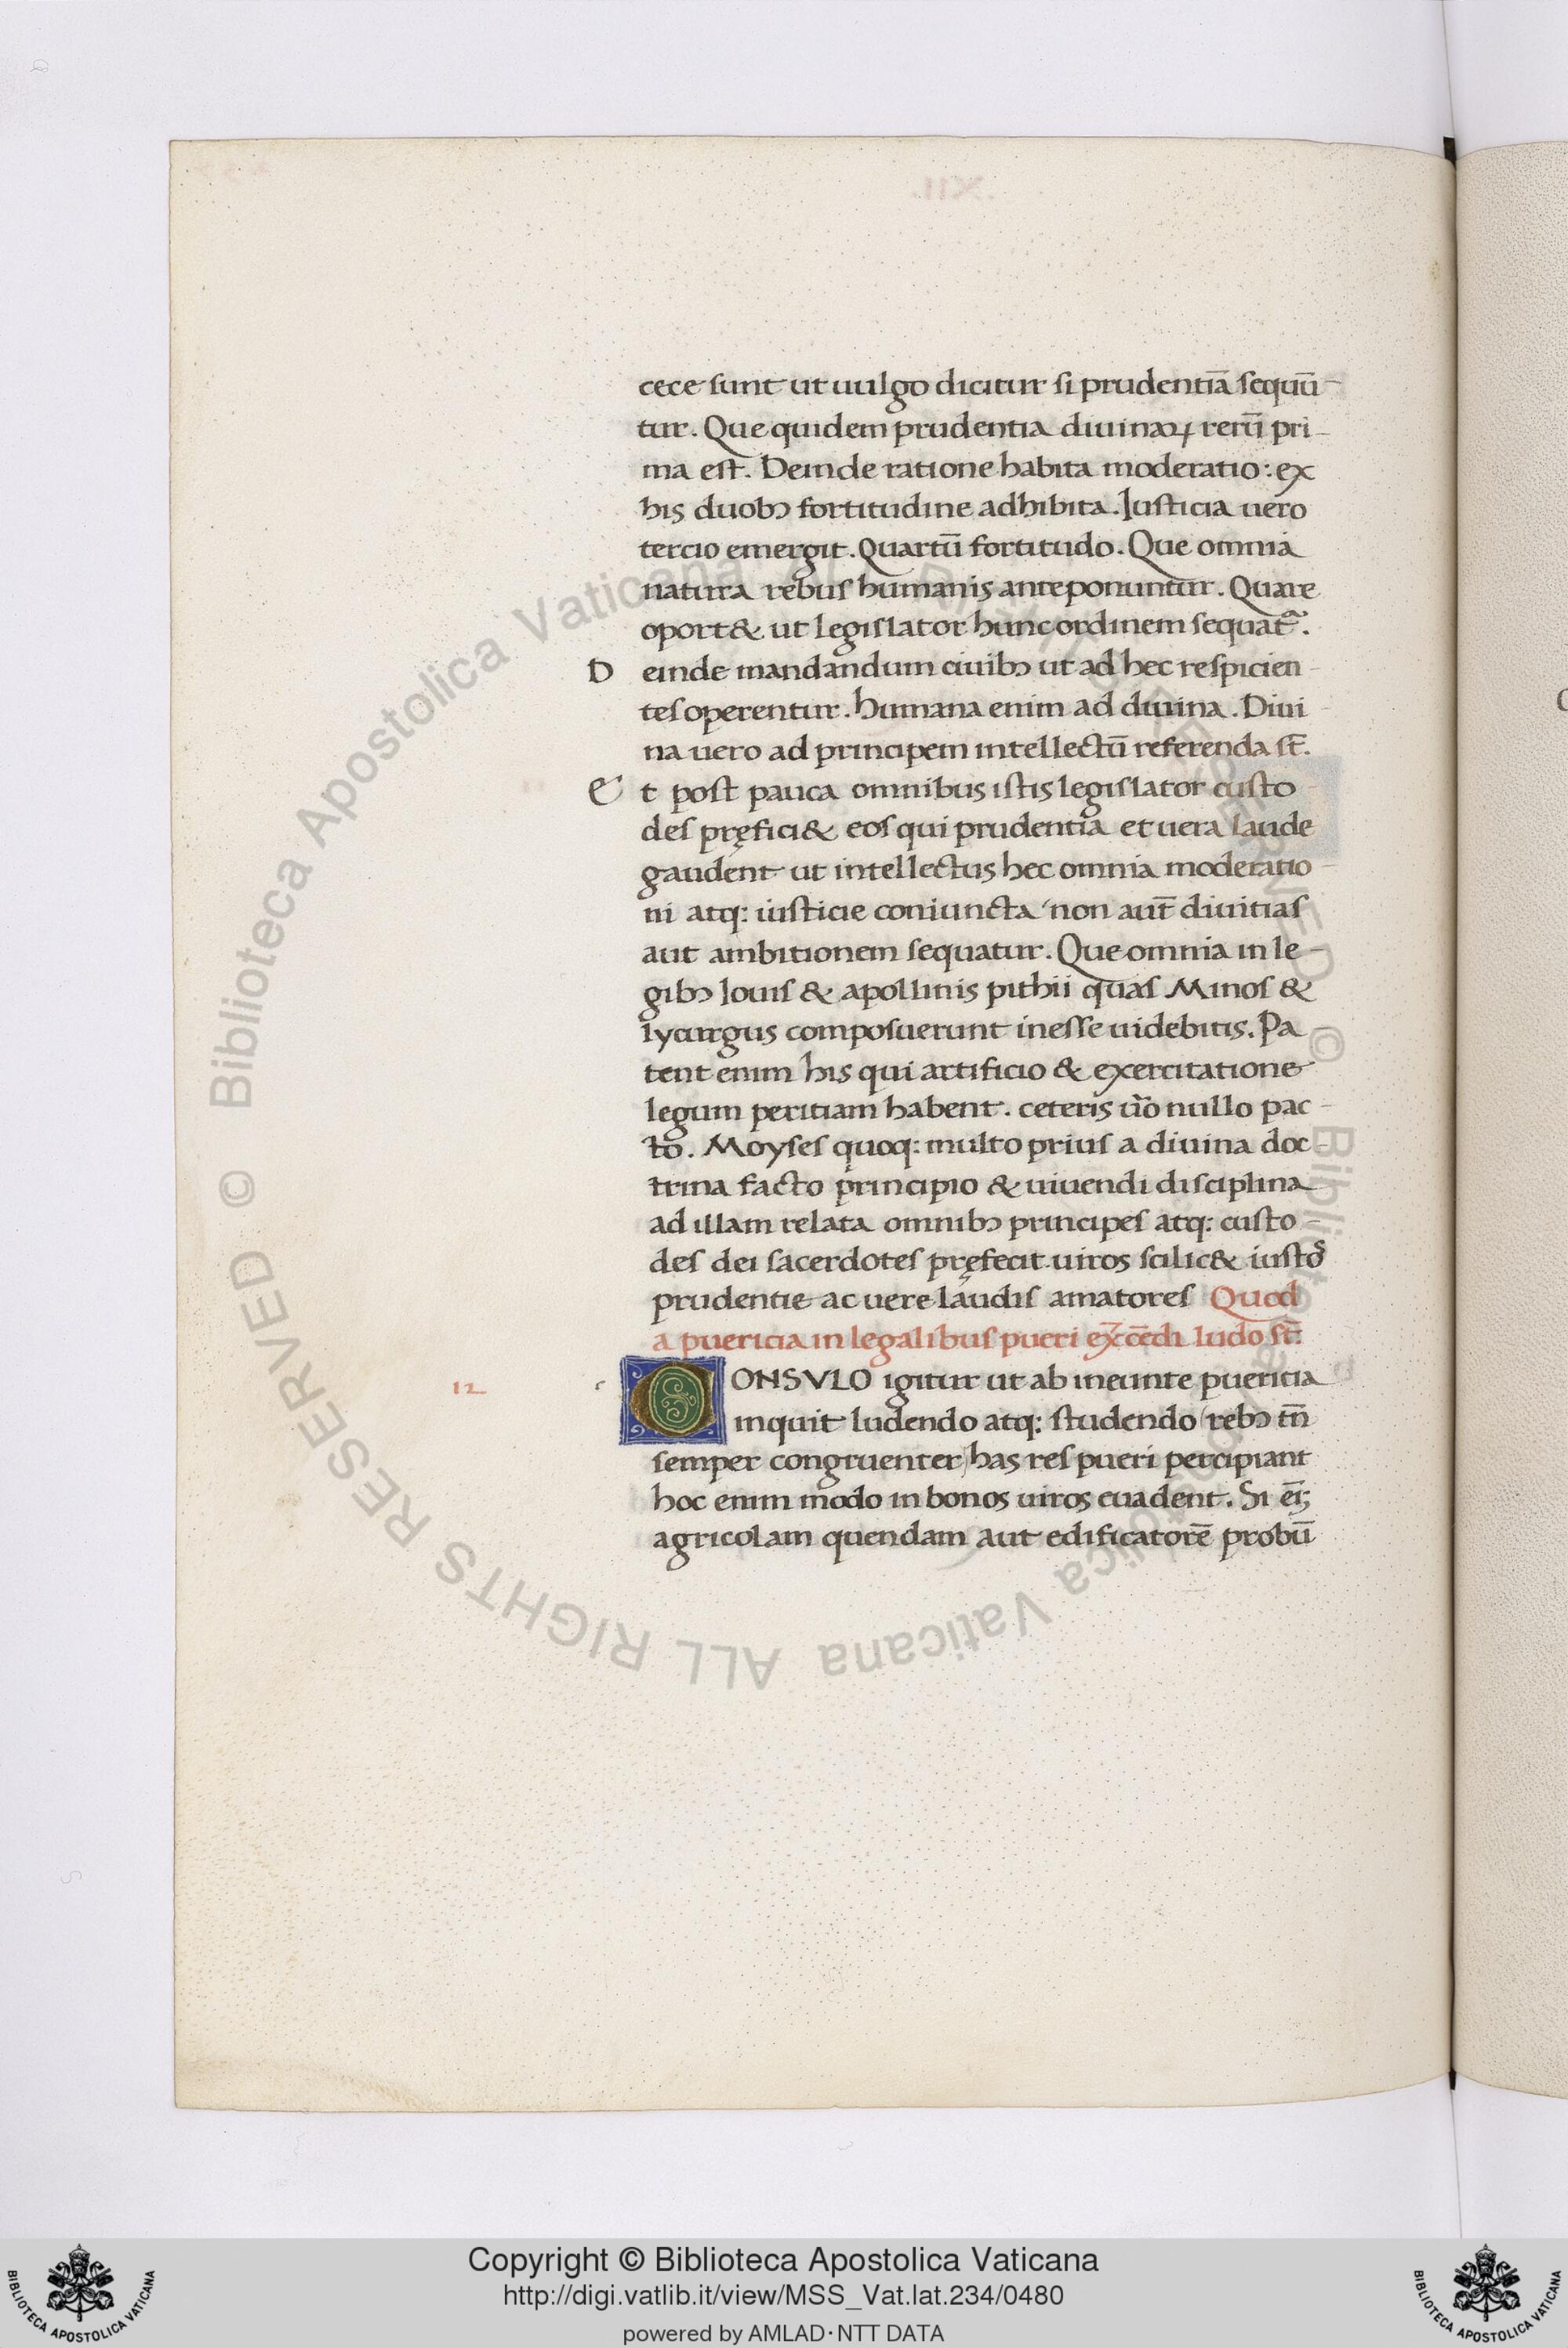 cece sunt ut uulgo dicitur si prudentiā sequū-
tur. Que quidem prudentia diuinaꝝ rerū pri-
ma est. Deinde ratione habita moderatio: ex
his duobꝰ fortitudine adhibita. Iusticia uero
tercio emergit. Quartū fortitudo. Que omnia
natura rebus humanis anteponuntur. Quare
oport& ut legislator hunc ordinem sequat᷑.
D einde mandandum ciuibꝰ ut ad hec respicien-
tes operentur. humana enim ad diuina. Diui-
na uero ad principem intellectū referenda st̄.
E t post pauca omnibus istis legislator custo
des pręfici& eos qui prudentia et uera laude
gaudent ut intellectus hec omnia moderatio-
ni atq: iusticie coniuncta non aut̄ diuitias
aut ambitionem sequatur. Que omnia in le-
gibꝰ Iouis & apollinis pithii quas Minos &
lycurgus composuerunt inesse uidebitis. Pa
tent enim his qui artificio & exercitatione
legum peritiam habent. ceteris ũo nullo pac-
to. Moyses quoq: multo prius a diuina doc-
trina facto principio & uiuendi disciplina
ad illam relata omnibꝰ principes atq: custo-
des dei sacerdotes pręfecit uiros scilic& iustos
prudentie ac uere laudis amatores Quod
a puericia in legalibus pueri ex̄cēdi ludo st̄:
12 c CONSVLO igitur ut ab ineunte pueritia
inquit ludendo atq: studendo (rebꝰ tn̄
semper congruenter) has res pueri percipiant
hoc enim modo in bonos uiros euadent. Si ei̅;
agricolam quendam aut edificatorē probū
Copyright © Biblioteca Apostolica Vaticana
http://digi.vatlib.it/view/MSS_Vat.lat.234/0480
powered by AMLAD·NTT DATA
BIBLIOTECA APOSTOLICA VATICANA
BIBLIOTECA APOSTOLICA VATICANA
© Biblioteca Apostolica Vaticana ALL RIGHTS RESERVED
© Biblioteca Apostolica Vaticana ALL RIGHTS RESERVED